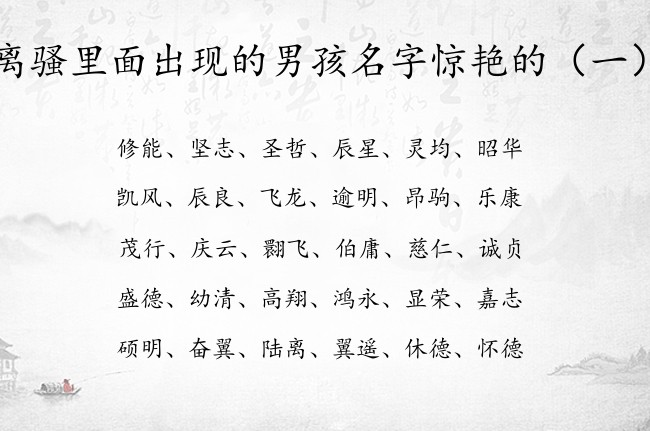 离骚里面出现的男孩名字惊艳的（一）
修能、坚志、圣哲、辰星、灵均、昭华
凯风、辰良、飞龙、逾明、昂驹、乐康
茂行、庆云、翾飞、伯庸、慈仁、诚贞
盛德、幼清、高翔、鸿永、显荣、嘉志
硕明、奋翼、陆离、翼遥、休德、怀德